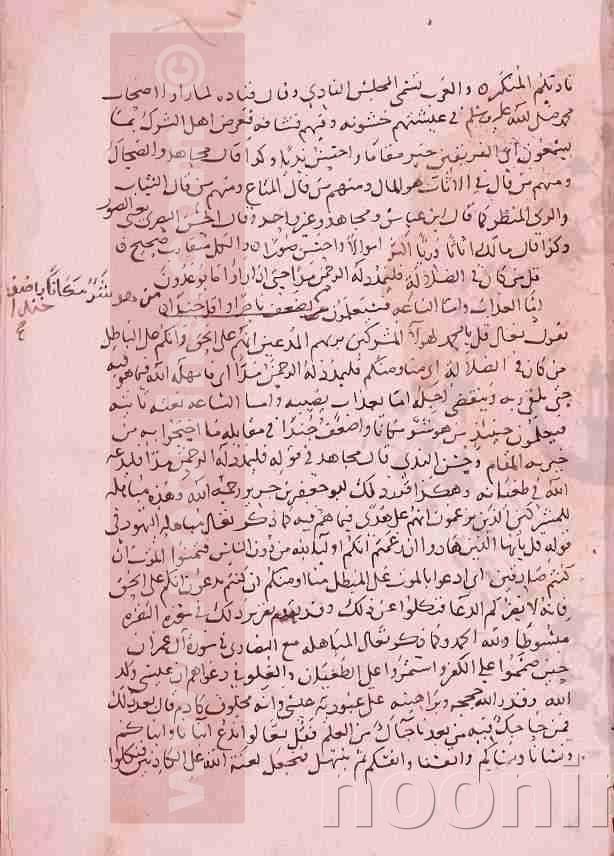 ناديكم المنكر والعرب تسمى المجلس النادي وقال قتاده لما راوا اصحاب
محمد صلى الله عليه وسلم في عيشهم خشونه وفيهم قشافه فعرض اهل الشرك بما
تسمعون اي الفريقين خير مقاما واحسن نديا وكذا قال مجاهد والضحاك
ومنهم من قال في الاثاث هو المال ومنهم من قال المتاع ومنهم من قال الثياب
والرى المنظر كما قال ابن عباس ومجاهد وغير واحد وقال الحسن البصري يعني الصور
وكذا قال مالك اثاثا وريا اكثر اموالا واحسن صورا والكل متقارب صحيح
قل من كان في الضلالة فليمدد له الرحمن مدا حتى اذا راوا ما يوعدون
اما العذاب واما الساعه فسيعلمون من هو شر مكانا واضعف جندا
يقول تعالى قل يا محمد لهولاء المشركين بربهم المدعين انهم على الحق وانكم على الباطل
من كان في الضلالة اي منا ومنكم فليمدد له الرحمن مدا اي فامهله الله فيما هو فيه
حتى يلقى ربه وينقضي اجله اما بعذاب يصيبه واما الساعه بغته تاتيه
فيعلمون حينيذ من هو شر مكانا واضعف جندا في مقابله ما احتجوا به من
خيريه المقام وحسن الندي قال مجاهد في قوله فليمدد له الرحمن مدا فليدعه
الله في طغيانه وهكذا قرر ذلك ابو جعفر بن جرير رحمه الله وهذه مباهله
للمشركين الذين يزعمون انهم على هدى فيما هم فيه كما ذكر تعالى مباهله اليهود في
قوله قل يايها الذين هادوا ان زعمتم انكم اولياء لله من دون الناس فتمنوا الموت ان
كنتم صادقين اي ادعوا بالموت على المبطل منا او منكم ان كنتم تدعون انكم على الحق
فانه لا يضركم الدعا فنكلوا عن ذلك وقد تقدم تقرير ذلك في سورة البقره
مبسوطا ولله الحمد وكما ذكر تعالى المباهله مع النصارى في سورة آل عمران
حين صمموا على الكفر واستمروا على الطغيان والغلو في دعواهم ان عيسى ولد
الله وقد ذكر الله حججه وبراهينه على عبوديه عيسى وانه مخلوق كادم قال بعد ذلك
فمن حاجك فيه من بعد ما جاك من العلم فقل تعالوا ندع ابنانا وابناكم
ونسانا ونساكم وانفسنا وانفسكم ثم نبتهل فنجعل لعنة الله على الكاذبين فنكلوا
من هو شر مكانا واضعف
جندا
noonir